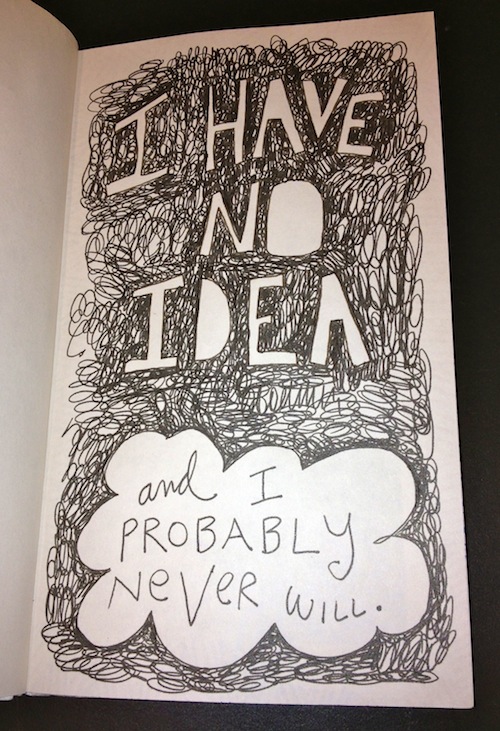 I HAVE
NO
IDEA
and I
PROBABLY
NeVeR WILL.